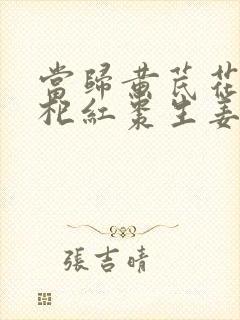 當歸黃芪花
杞紅棗生姜
張吉晴